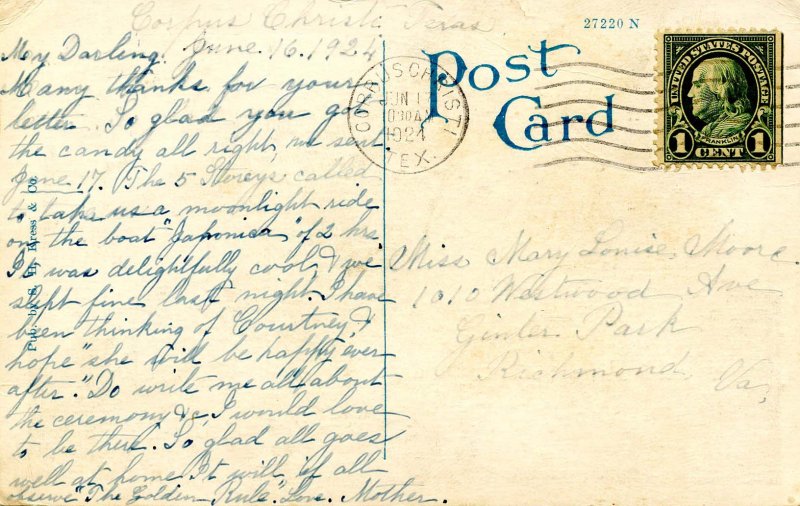 Corpus Christi Texas
June 16. 1924
My Darling.
Many thanks for your
letter. So glad you got
the candy all right, we sent.
June 17. The 5 Storeys called
to take us a moonlight ride
on the boat "Japonica" of 2 hrs
It was delightfully cool & we
slept fine last night. I have
been thinking of Courtney, &
hope "she will be happy ever
after." Do write me all about
the ceremony &c, I would love
to be there. So glad all goes
well at home. It will, if all
observe "The Golden Rule". Love. Mother.
Pub. by S. H. Kress & Co.
27220 N
Post
Card
CORPUS CHRISTI
JUN 17
1924
TEX.
UNITED STATES POSTAGE
FRANKLIN
1 CENT 1
Miss Mary Louise Moore.
1010 Westwood Ave
Ginter Park
Richmond Va.